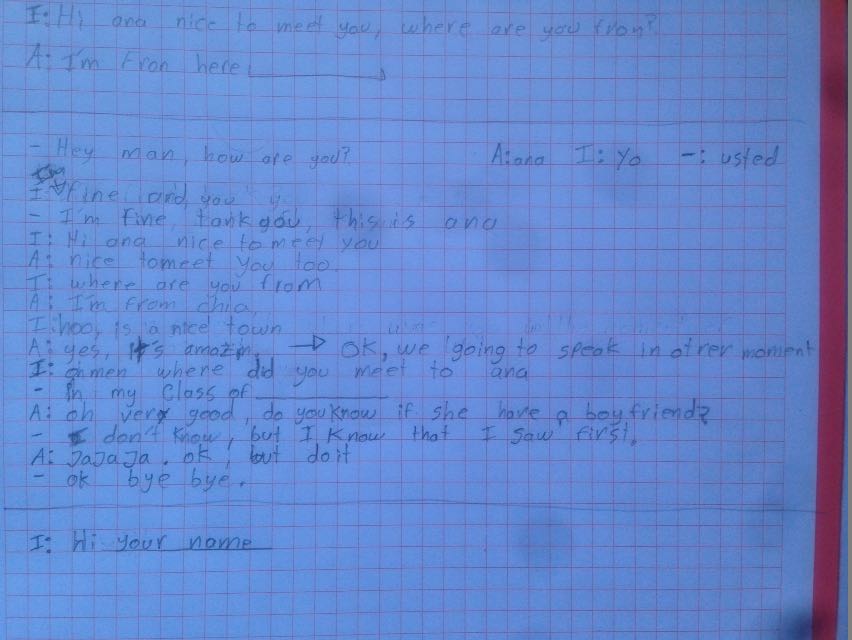 I: Hi ana nice to meet you, where are you fron?
A: I'm fron here
- Hey man, how are you? A: ana I: Yo -: usted
I: fine and you
- I'm fine, tank you, this is ana
I: Hi ana nice to meet you
A: nice tomeet you too.
I: where are you from
A: I'm from chia,
I: hoo, is a nice town
A: yes, It's amazin, → OK, we going to speak in otrer moment
I: oh men where did you meet to ana
- In my Class of
A: oh very good, do you know if she have a boyfriend?
- I don't know, but I know that I saw first.
A: JaJaJa. ok, but do it
- ok bye bye.
I: Hi your name